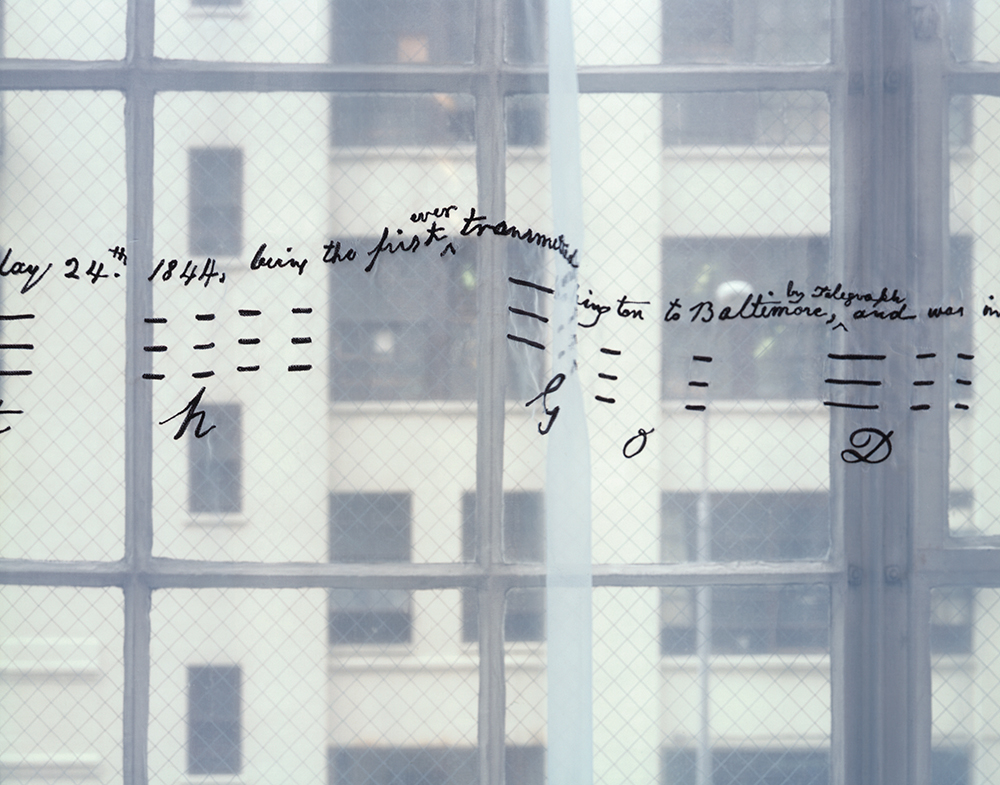 day 24.th 1844, being the first ever transmitted
ington to Baltimore, by Telegraph and was in
h G
o D